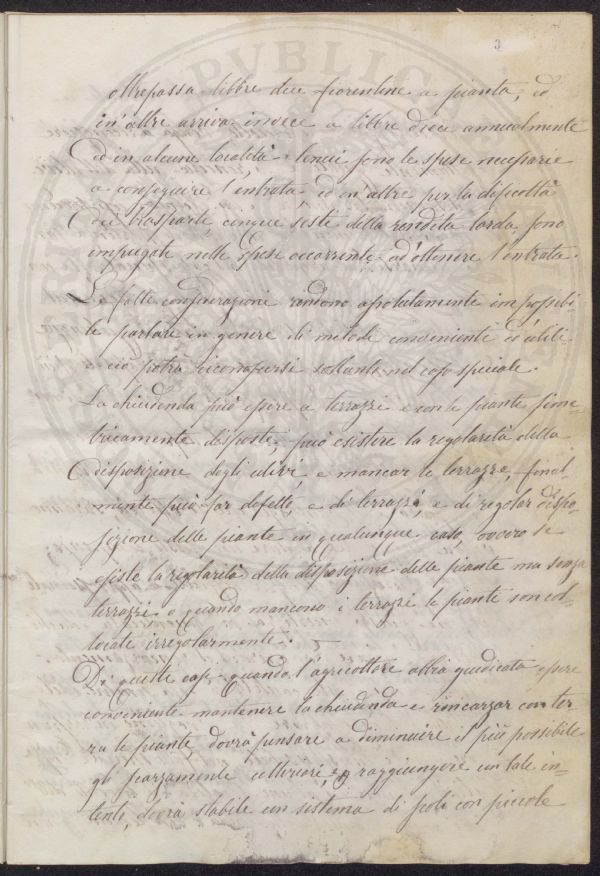 3
oltrepassa libbre due fiorentine a pianta, ed
in altre arriva invece a libbre dieci annualmente
ed in alcune località tenui sono le spese necessarie
a conseguire l'entrata, ed in altre per la difficoltà
dei trasporti, cinque seste della rendita lorda sono
impiegate nelle spese occorrenti ad ottenere l'entrata.
Le fatte considerazioni rendono assolutamente impossibi-
le parlare in genere di metodi convenienti ed utili
e ciò potrà riconoscersi soltanto nel caso speciale.
La chiudenda può essere a terrazzi e con le piante sime-
tricamente disposte, può esistere la regolarità della
disposizione degli ulivi, e mancar le terrazze, final-
mente può far difetto, e di terrazzi, e di regolar dispo-
sizione delle piante in qualunque caso, ovvero se
esiste la regolarità della disposizione delle piante ma senza
terrazzi o quando mancono i terrazzi le piante son col-
locate irregolarmente.
Di queste casi quando l'agricoltore abbia giudicata essere
conveniente mantenere la chiudenda e rincarzar con ter
ra le piante, dovrà pensare a diminuire il più possibile
gli scarzamenti ulteriori, e raggiungere un tale in-
tento, dovrà stabile un sistema di scoli con piccole
PVBLIC